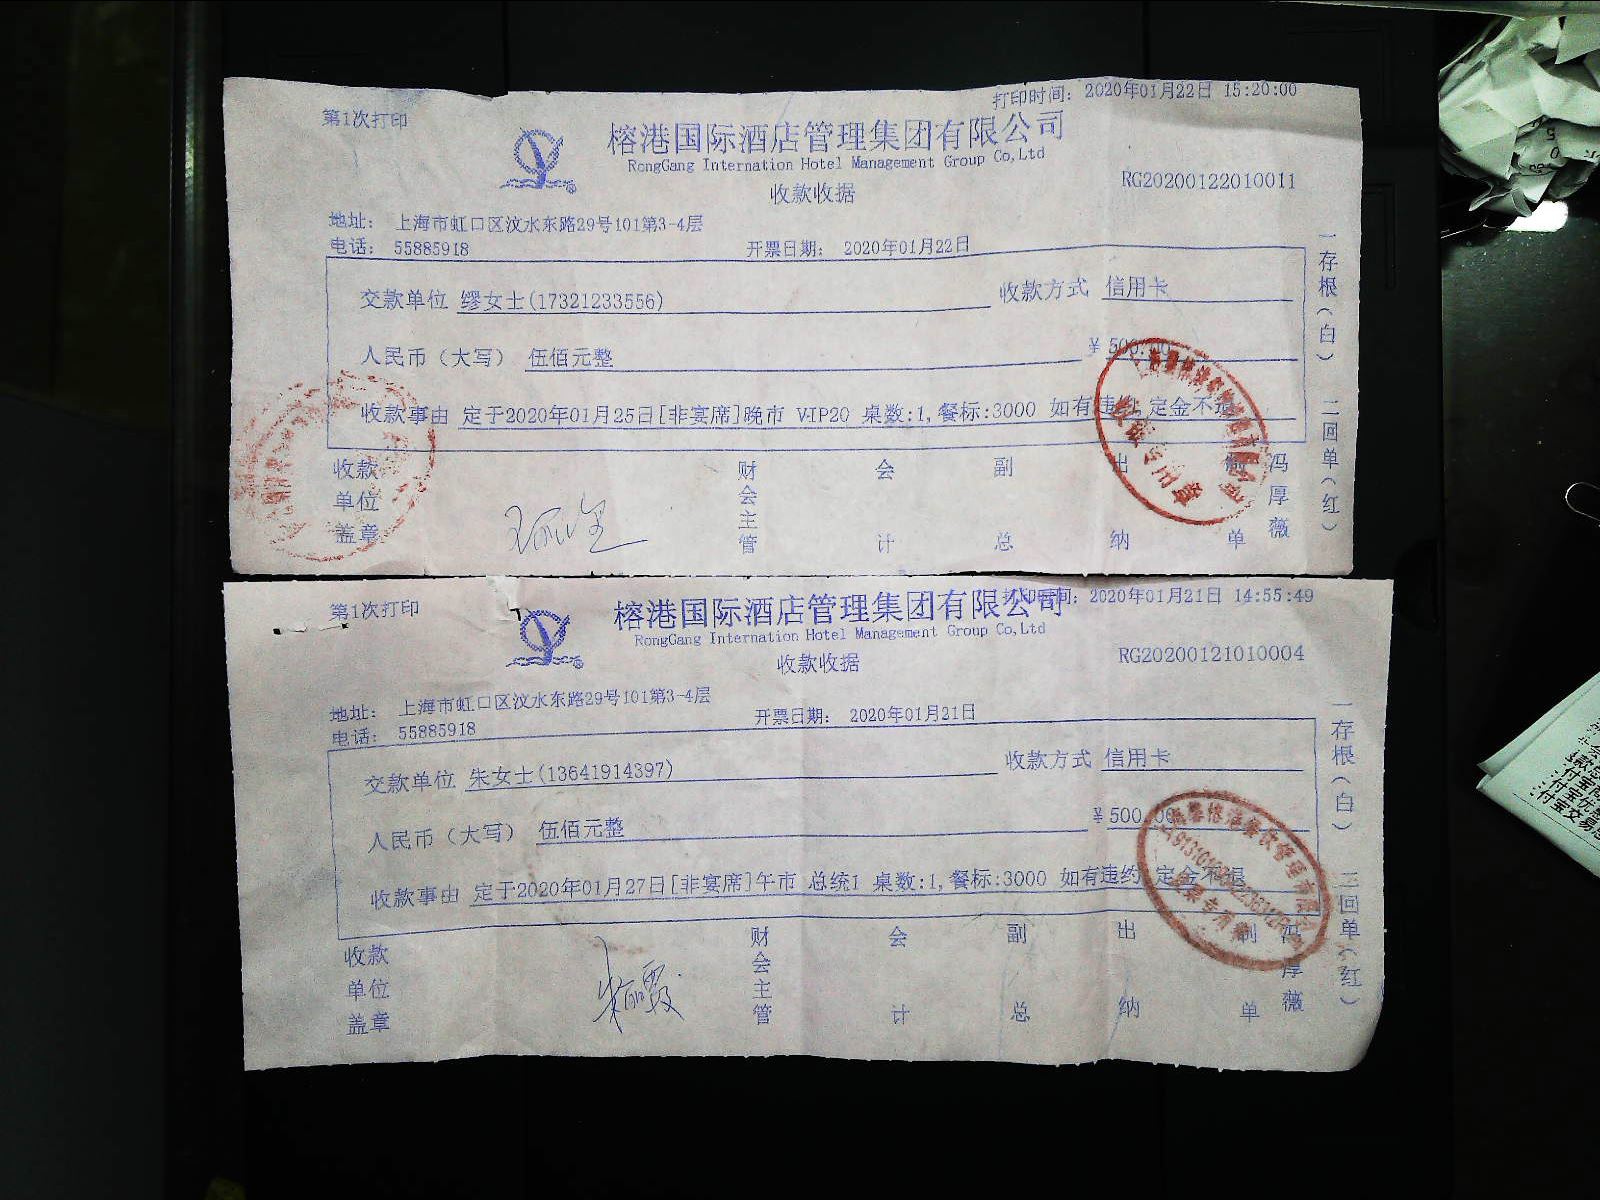 第1次打印
打印时间: 2020年01月22日 15:20:00
榕港国际酒店管理集团有限公司
RongGang Internation Hotel Management Group Co,Ltd
收款收据
RG20200122010011
地址: 上海市虹口区汶水东路29号101第3-4层
电话: 55885918
开票日期: 2020年01月22日
交款单位 缪女士(17321233556)
收款方式 信用卡
人民币（大写） 伍佰元整
¥ 500.00
收款事由 定于2020年01月25日[非宴席]晚市 VIP20 桌数:1,餐标:3000 如有违约,定金不退
收款单位盖章
财会主管
会计
副总
出纳
制单
冯厚薇
一存根(白)
二回单(红)
第1次打印
打印时间: 2020年01月21日 14:55:49
榕港国际酒店管理集团有限公司
RongGang Internation Hotel Management Group Co,Ltd
收款收据
RG20200121010004
地址: 上海市虹口区汶水东路29号101第3-4层
电话: 55885918
开票日期: 2020年01月21日
交款单位 朱女士(13641914397)
收款方式 信用卡
人民币（大写） 伍佰元整
¥ 500.00
收款事由 定于2020年01月27日[非宴席]午市 总统1 桌数:1,餐标:3000 如有违约,定金不退
收款单位盖章
财会主管
会计
副总
出纳
制单
冯厚薇
一存根(白)
二回单(红)